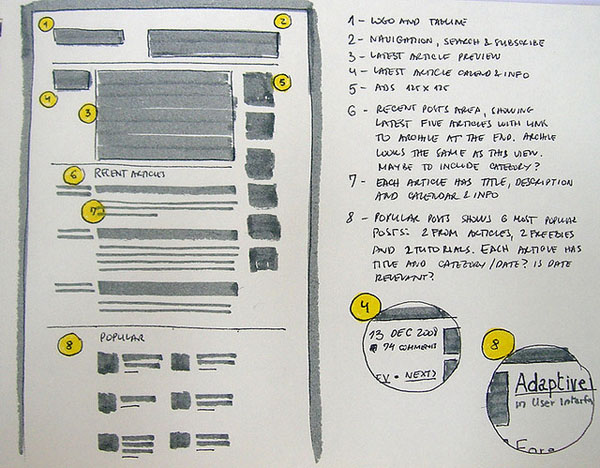 1
2
3
4
5
6 RECENT ARTICLES
7
8 POPULAR
1 - LOGO AND TAGLINE
2 - NAVIGATION, SEARCH & SUBSCRIBE
3 - LATEST ARTICLE PREVIEW
4 - LATEST ARTICLE CALEND & INFO
5 - ADS 125 X 125
6 - RECENT POSTS AREA, SHOWING
LATEST FIVE ARTICLES WITH LINK
TO ARCHIVE AT THE END. ARCHIVE
LOOKS THE SAME AS THIS VIEW.
MAYBE TO INCLUDE CATEGORY?
7 - EACH ARTICLE HAS TITLE, DESCRIPTION
AND CALENDAR & INFO
8 - POPULAR POSTS SHOWS 6 MOST POPULAR
POSTS: 2 FROM ARTICLES, 2 FREEBIES
AND 2 TUTORIALS. EACH ARTICLE HAS
TITLE AND CATEGORY/DATE? IS DATE
RELEVANT?
4
13 DEC 2008
74 COMMENTS
EV • NEXT?
8
Adaptive
in User Interfa